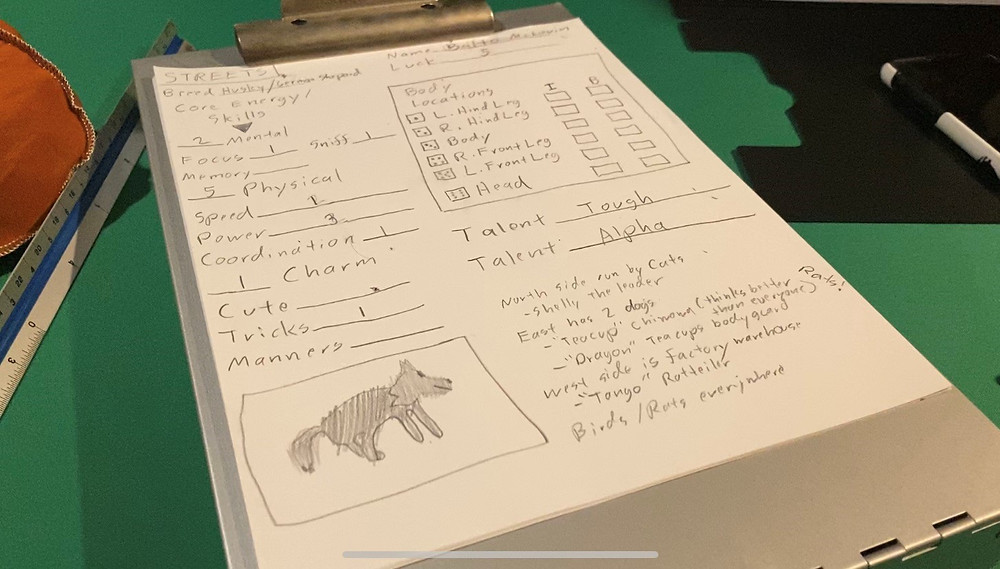 STREETS
Name Balto
Luck 5
Breed Husky/German Sheperd
Core Energy/
Skills
2 Mental
Focus 1 Sniff 1
Memory
5 Physical
Speed 1
Power 3
Coordination 1
1 Charm
Cute
Tricks 1
Manners
Body
Locations I B
L. Hind Leg
R. Hind Leg
Body
R. Front Leg
L. Front Leg
Head
Talent Tough
Talent: Alpha
North side run by Cats
- Shelly the leader
East has 2 dogs
- "Teacup" (thinks better than everyone) Rats!
- "Dragon" Teacups bodygaurd
West side is factory warehouse
- "Tongo" Rotteiler
Birds/Rats everywhere